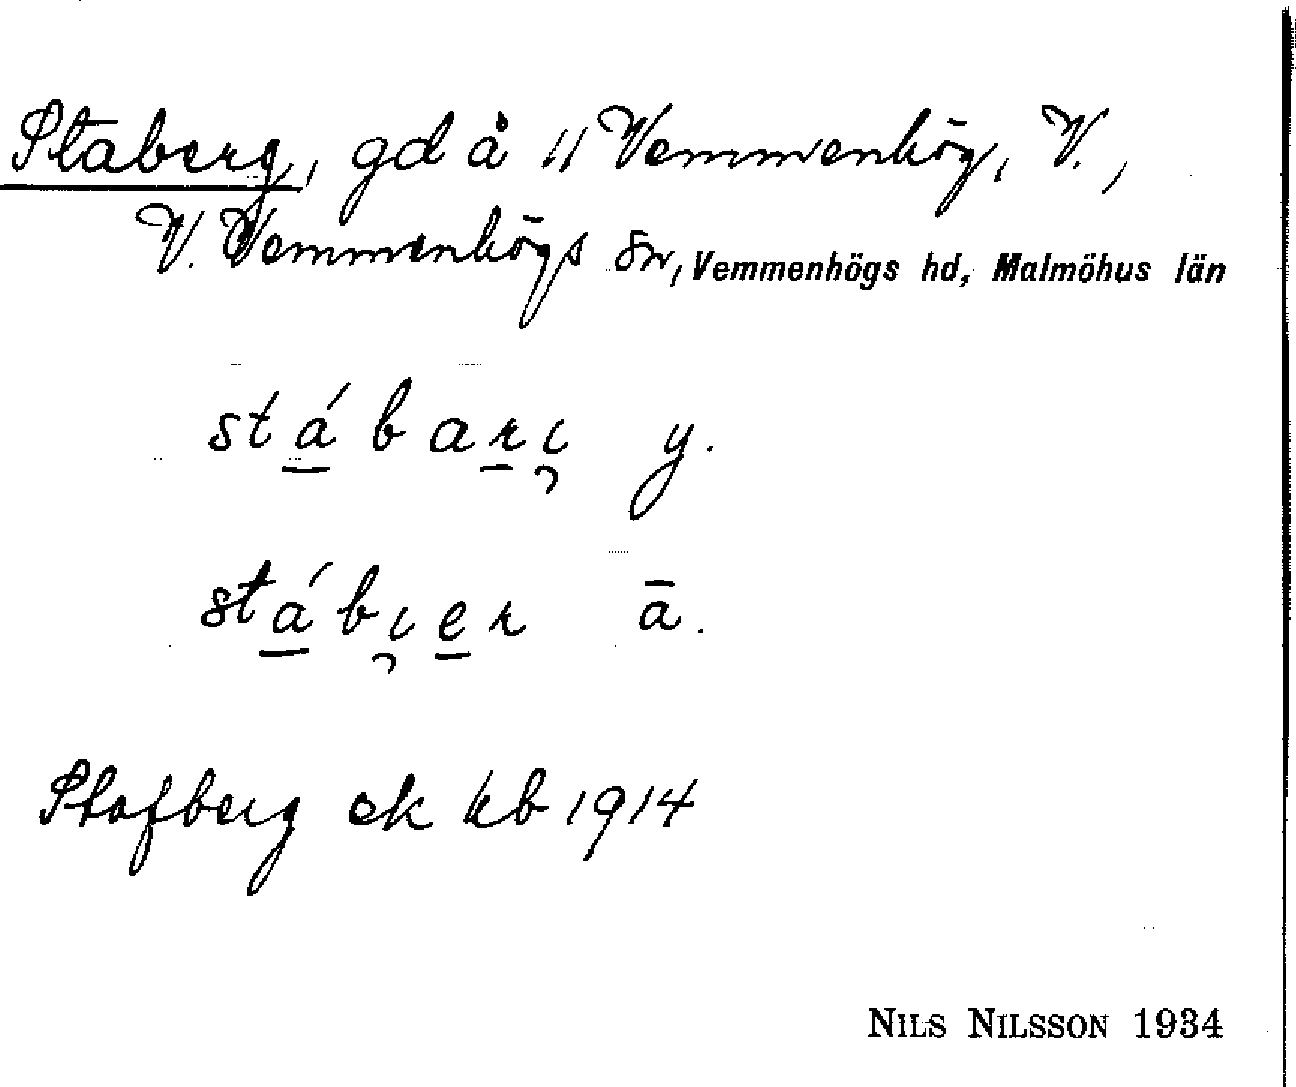 Staberg, gd å 11 Vemmenhög, V.,
V. Vemmenhögs sn, Vemmenhögs hd, Malmöhus län
stá̱barı̨ y.
stá̱bı̨er ā.
Stafberg ek kb 1914
NILS NILSSON 1934